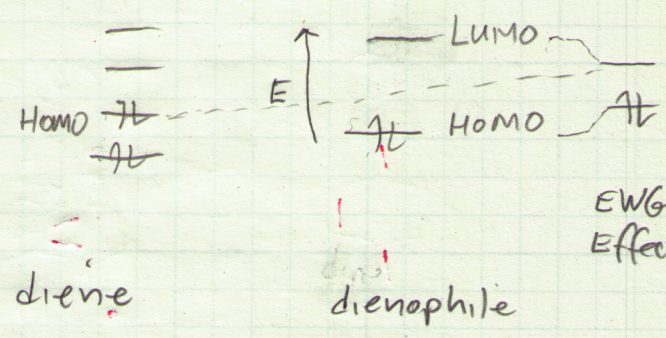 LUMO
E
HOMO
HOMO
EWG
Effec
diene
dienophile